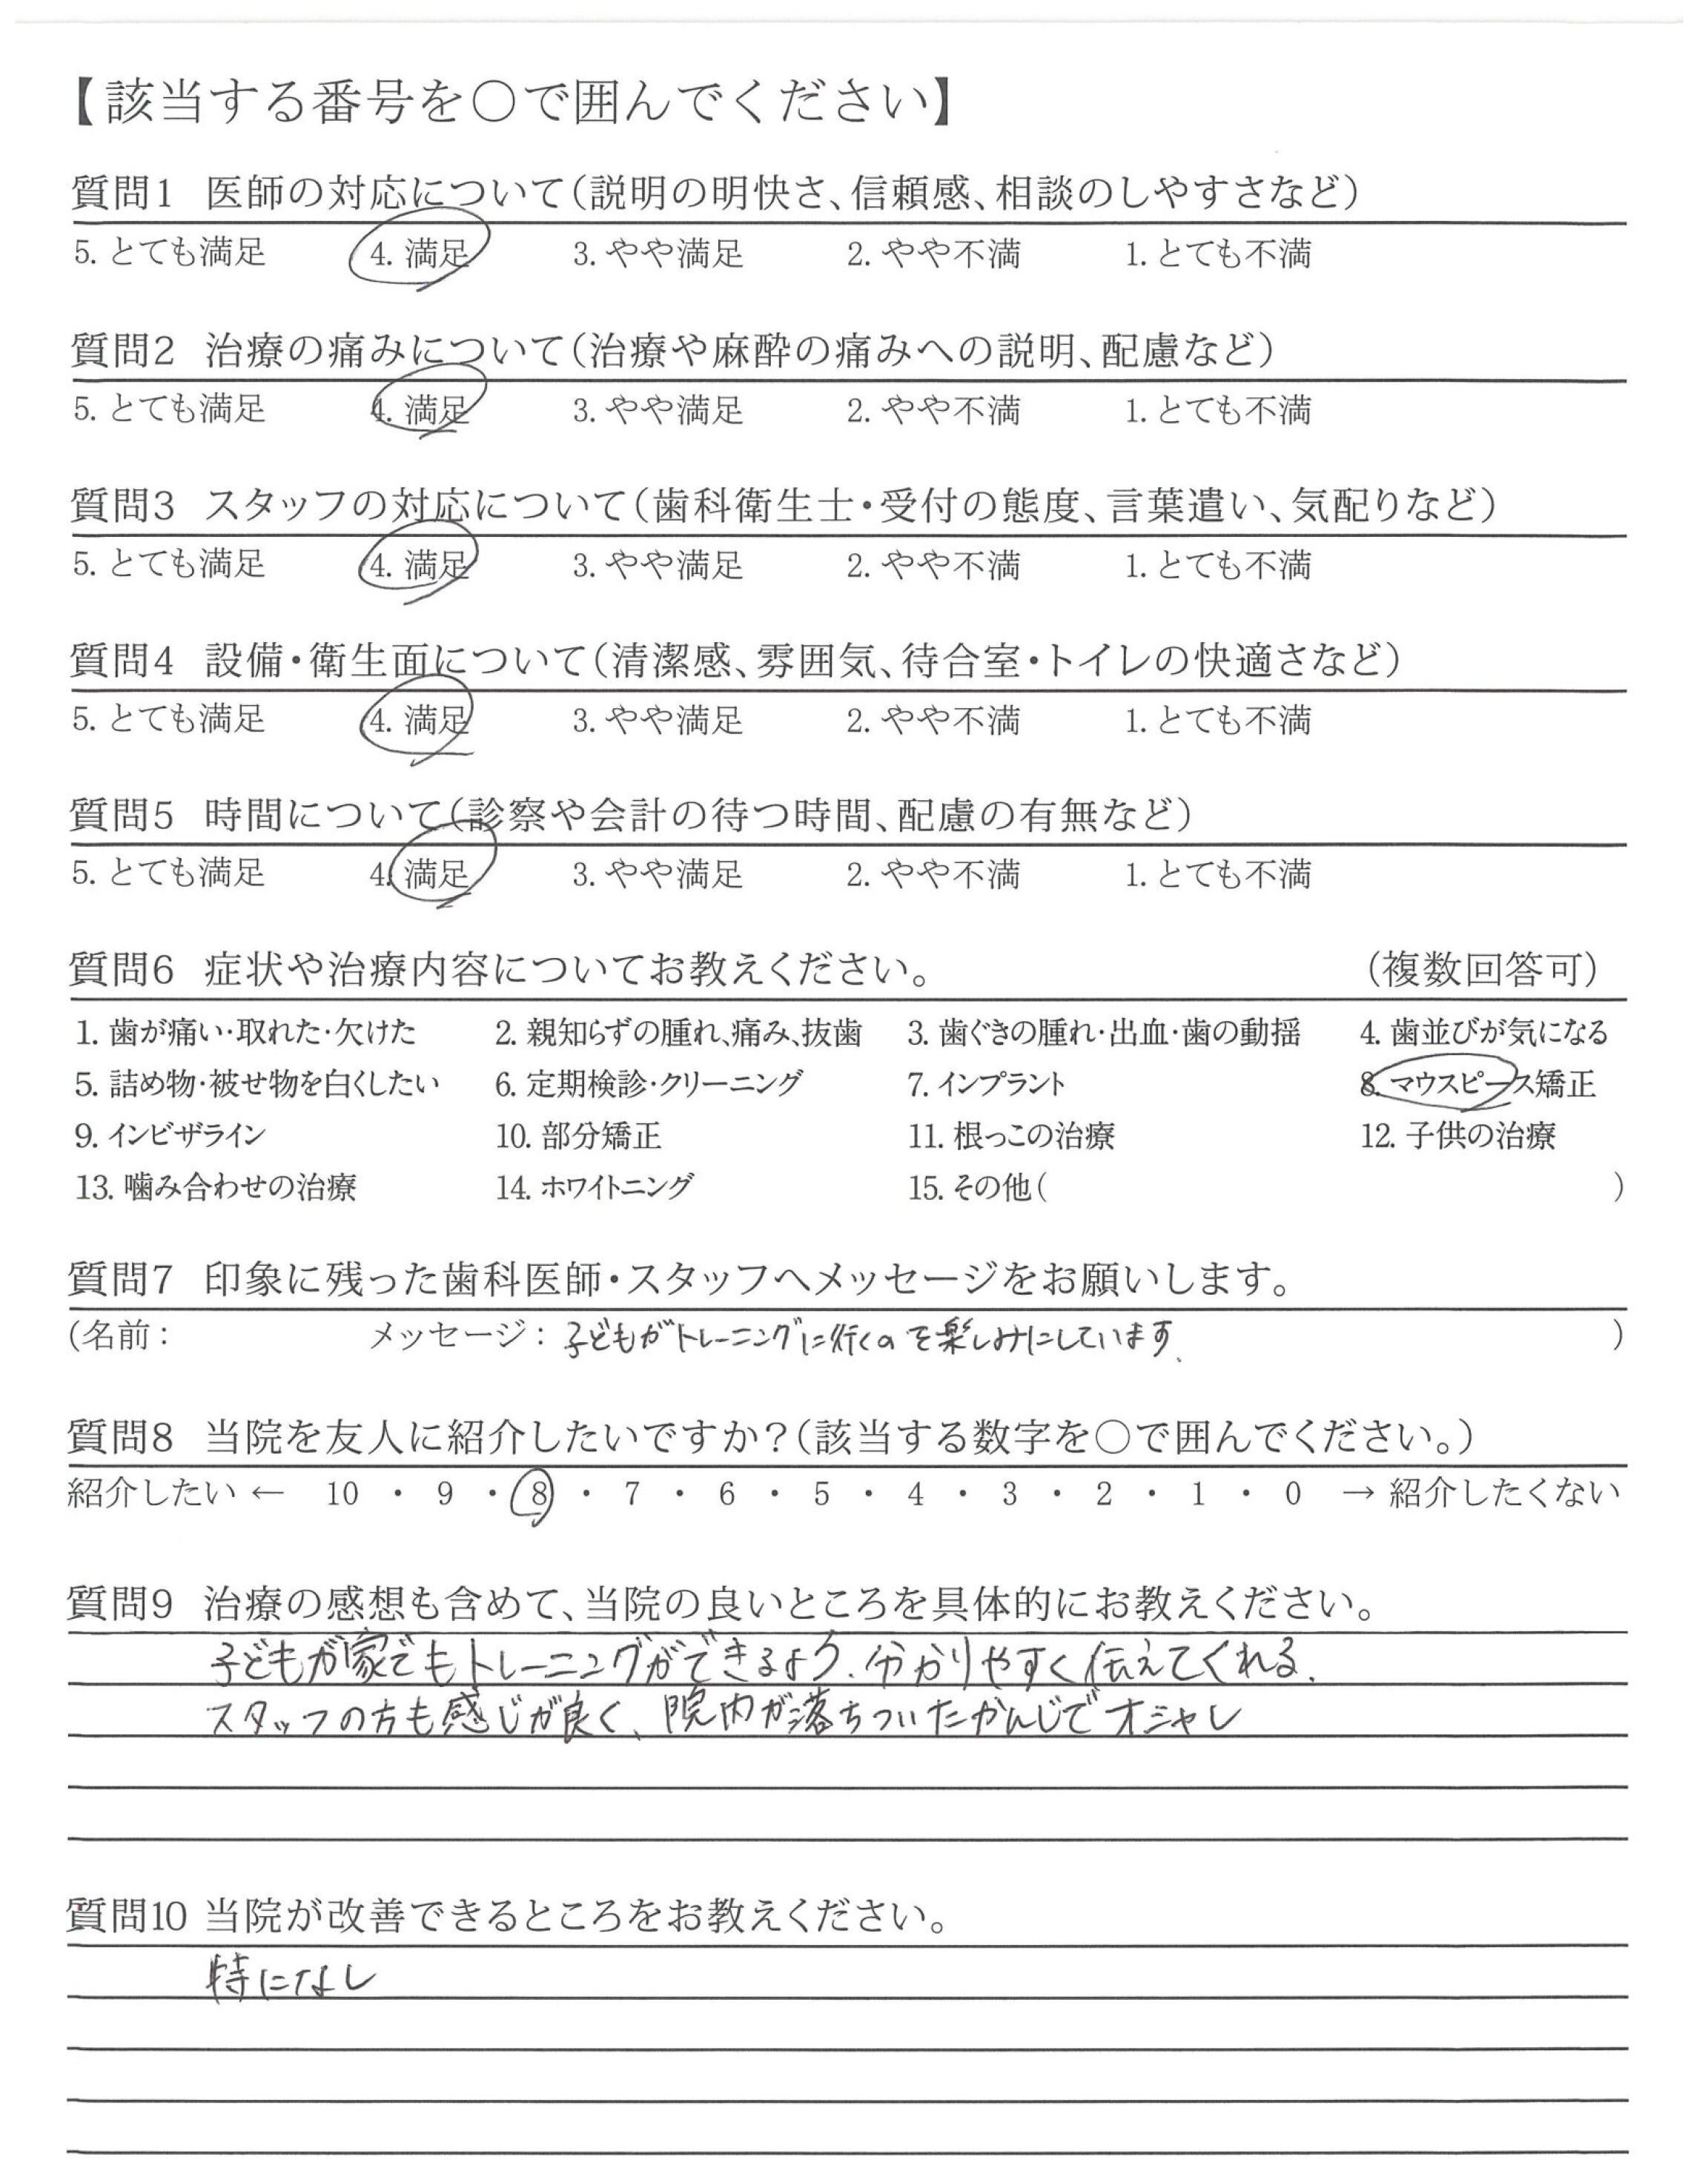 【該当する番号を○で囲んでください】
質問1 医師の対応について(説明の明快さ、信頼感、相談のしやすさなど)
5. とても満足 4. 満足 3. やや満足 2. やや不満 1. とても不満
質問2 治療の痛みについて(治療や麻酔の痛みへの説明、配慮など)
5. とても満足 4. 満足 3. やや満足 2. やや不満 1. とても不満
質問3 スタッフの対応について(歯科衛生士・受付の態度、言葉遣い、気配りなど)
5. とても満足 4. 満足 3. やや満足 2. やや不満 1. とても不満
質問4 設備・衛生面について(清潔感、雰囲気、待合室・トイレの快適さなど)
5. とても満足 4. 満足 3. やや満足 2. やや不満 1. とても不満
質問5 時間について(診察や会計の待つ時間、配慮の有無など)
5. とても満足 4. 満足 3. やや満足 2. やや不満 1. とても不満
質問6 症状や治療内容についてお教えください。 (複数回答可)
1. 歯が痛い・取れた・欠けた 2. 親知らずの腫れ、痛み、抜歯 3. 歯ぐきの腫れ・出血・歯の動揺 4. 歯並びが気になる
5. 詰め物・被せ物を白くしたい 6. 定期検診・クリーニング 7. インプラント 8. マウスピース矯正
9. インビザライン 10. 部分矯正 11. 根っこの治療 12. 子供の治療
13. 噛み合わせの治療 14. ホワイトニング 15. その他( )
質問7 印象に残った歯科医師・スタッフへメッセージをお願いします。
(名前: メッセージ: 子どもがトレーニングに行くのを楽しみにしています、 )
質問8 当院を友人に紹介したいですか?(該当する数字を○で囲んでください。)
紹介したい ← 10 ・ 9 ・ 8 ・ 7 ・ 6 ・ 5 ・ 4 ・ 3 ・ 2 ・ 1 ・ 0 → 紹介したくない
質問9 治療の感想も含めて、当院の良いところを具体的にお教えください。
子どもが家でもトレーニングができるよう、分かりやすく伝えてくれる、
スタッフの方も感じが良く、院内が落ちついたかんじでオシャレ
質問10 当院が改善できるところをお教えください。
特になし